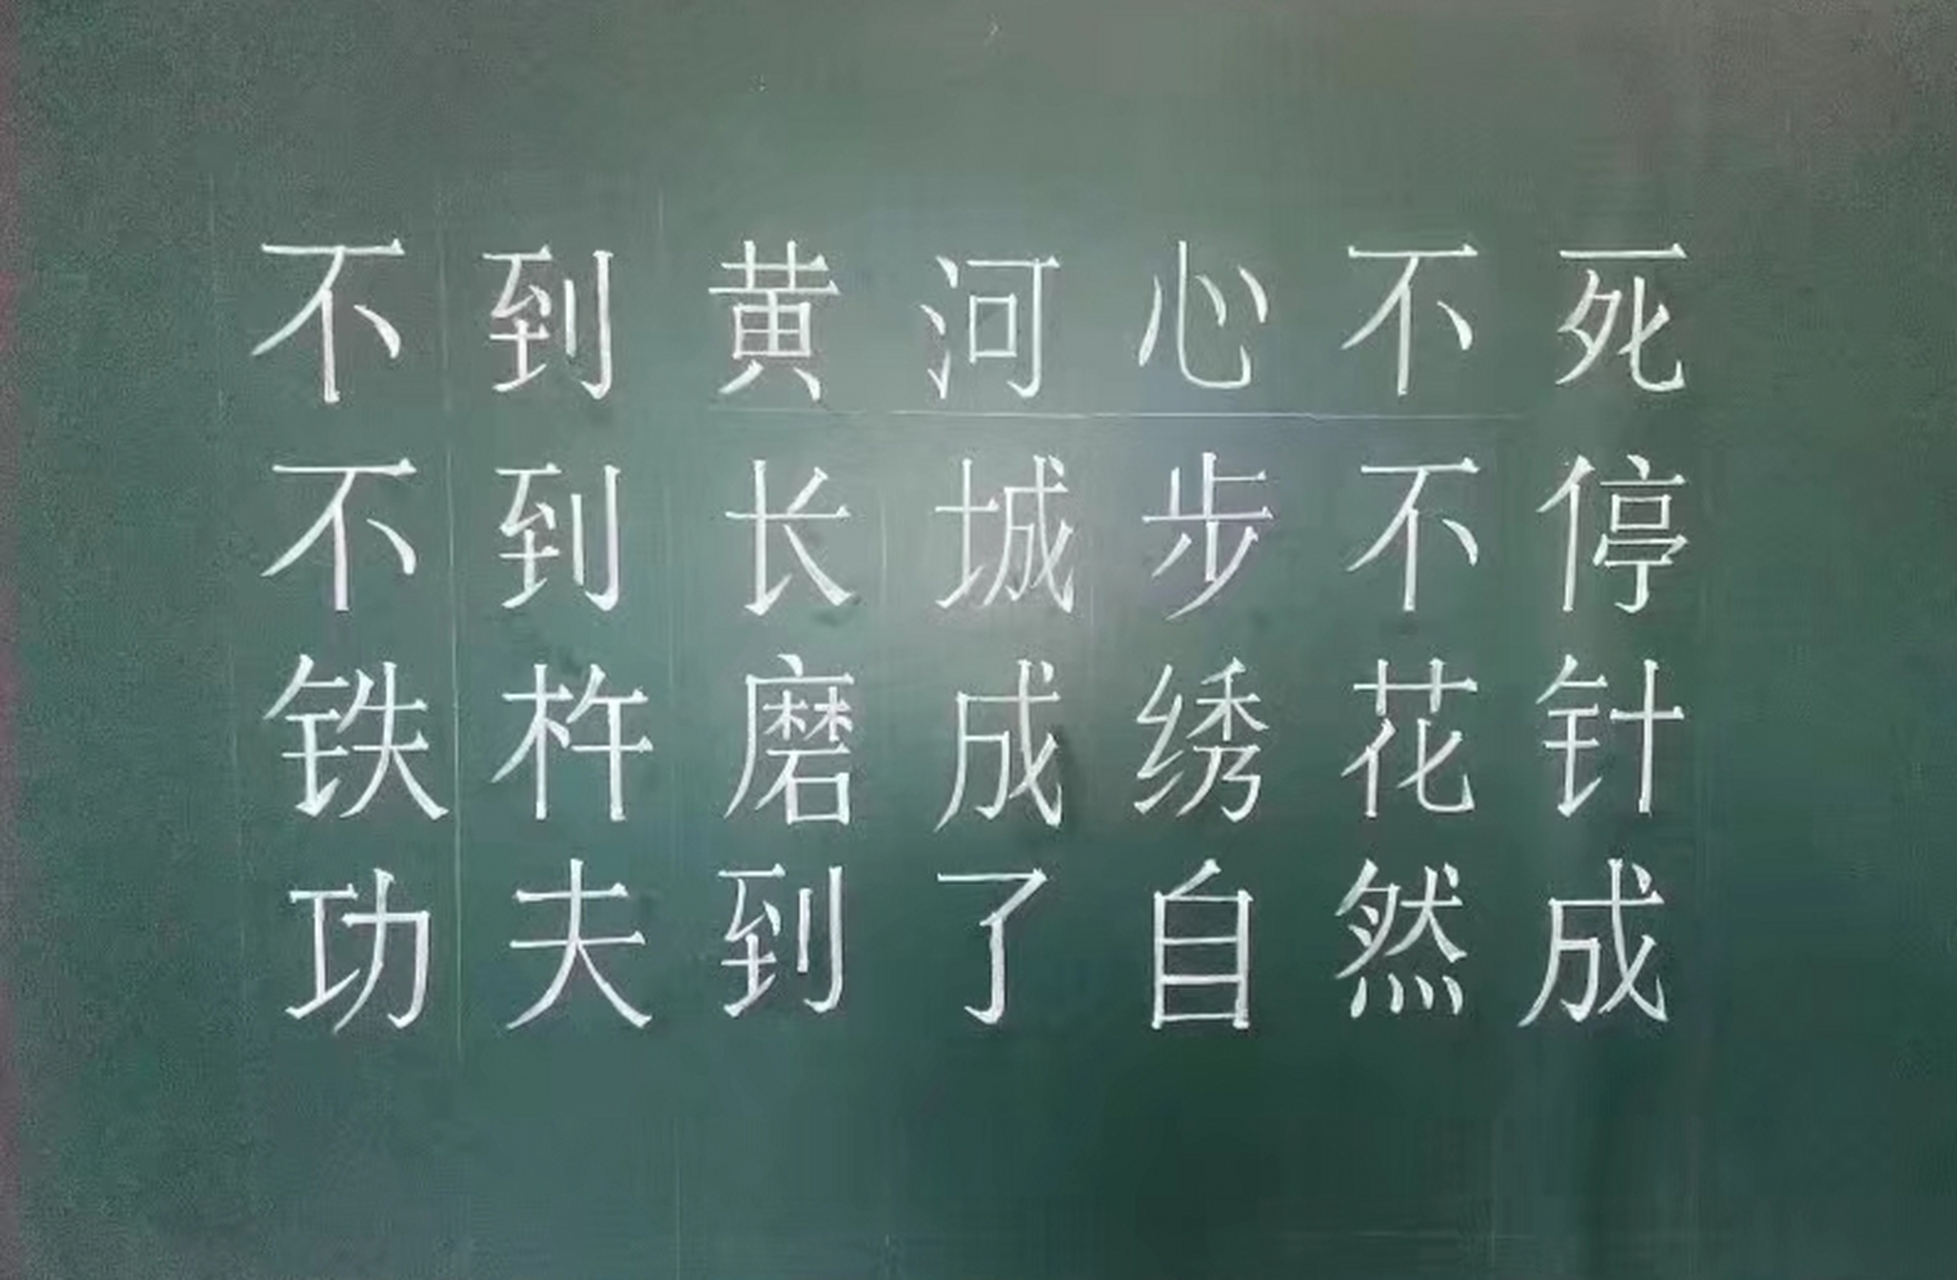 不到黄河心不死
不到长城步不停
铁杵磨成绣花针
功夫到了自然成